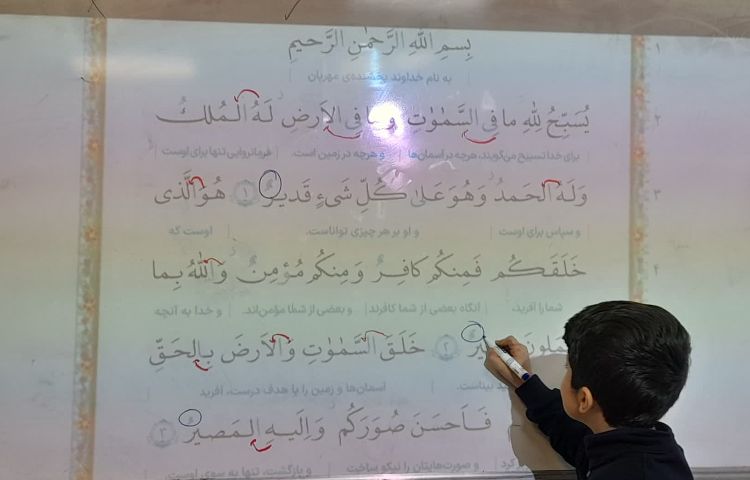 ١
بِسمِ اللهِ الرَّحمٰنِ الرَّحیمِ
به نام خداوند بخشنده‌ی مهربان
٢
یُسَبِّحُ لِلّٰهِ ما فِی السَّمٰوٰتِ وَ ما فِی الاَرضِ لَهُ المُلکُ
برای خدا تسبیح می‌گویند، هرچه در آسمان‌ها و هرچه در زمین است. فرمانروایی تنها برای اوست
٣
وَ لَهُ الحَمدُ وَ هُوَ عَلیٰ کُلِّ شَیءٍ قَدیرٌ ١ هُوَ الَّذی
و سپاس برای اوست و او بر هر چیزی تواناست. اوست که
٤
خَلَقَکُم فَمِنکُم کافِرٌ وَ مِنکُم مُؤمِنٌ وَ اللهُ بِما
شما را آفرید، آنگاه بعضی از شما کافرند و بعضی از شما مؤمن‌اند. و خدا به آنچه
٢ خَلَقَ السَّمٰوٰتِ وَ الاَرضَ بِالحَقِّ
آسمان‌ها و زمین را با هدف درست، آفرید
فَاَحسَنَ صُوَرَکُم وَ اِلَیهِ المَصیرُ ٣
کرد و صورت‌هایتان را نیکو ساخت و بازگشت، تنها به سوی اوست.